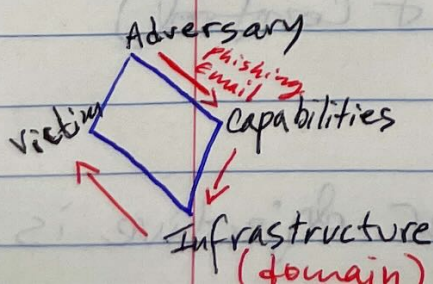 Adversary
phishing
Email
Capabilities
Victim
Infrastructure
(domain)